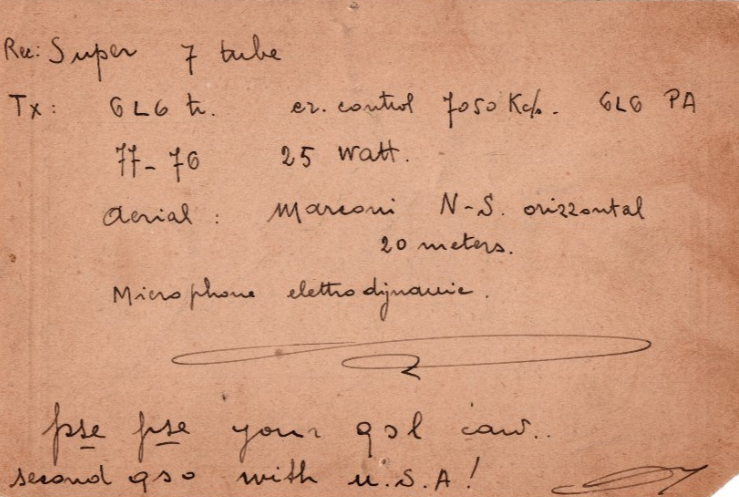 Rec: Super 7 tube
Tx: 6L6 tr. cr. control 7050 Kc/s. 6L6 PA
77-76 25 Watt.
Aerial: Marconi N-S. orizzontal
20 meters.
Microphone elettrodijnamic.
pse pse your qsl card..
second qso with U.S.A!